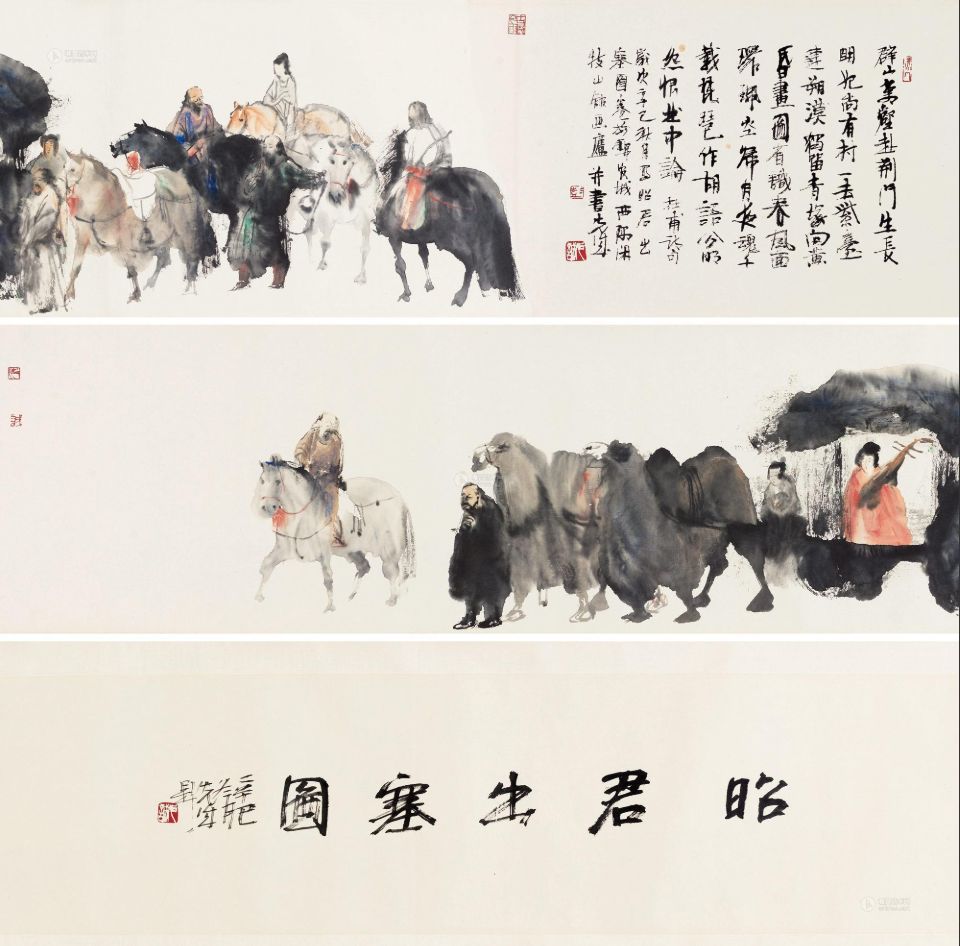 群山萬壑赴荆門生長
明妃尚有村一去紫臺
連朔漠獨留青塚向黄
昏畫圖省識春風面
環珮空歸月夜魂千
載琵琶作胡語分明
怨恨曲中論 杜甫詩句
歲次辛巳秋月寫昭君出
塞圖
并書
昭君出塞圖